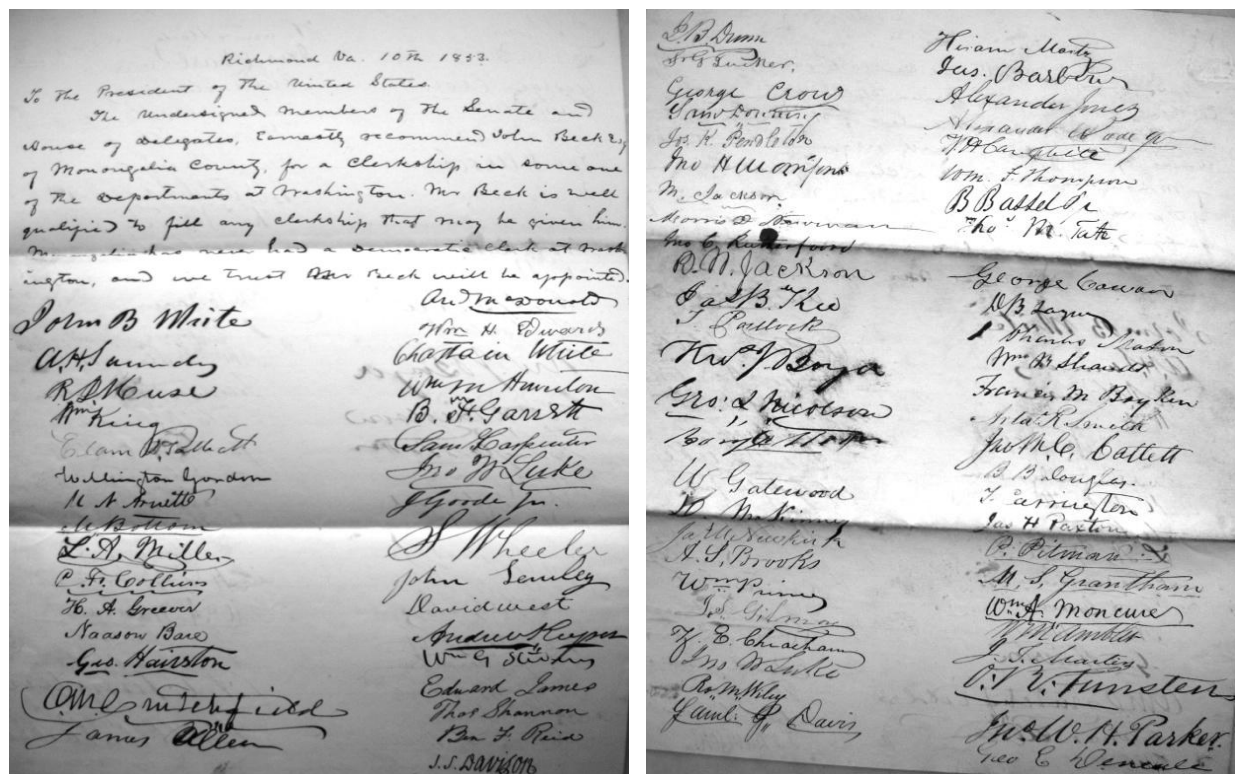 Richmond Va. 10th 1853.
To the President of the United States
The undersigned members of the Senate and
House of Delegates, Earnestly recommend John Beck Esq
of Monongalia County, for a Clerkship, in some one
of the Departments at Washington. Mr Beck is well
qualified to fill any clerkship that may be given him.
Monongalia has never had a Democratic Clerk at Wash
ington, and we trust Mr Beck will be appointed.
John B White
A.H. Saunders
R D Muse
Wm King
Wellington Gordon
U N Arnett
M Bottom
L. A. Miller
C. F. Collins
H. A. Greever
Naason Bare
Geo. Hairston
O.M. Crutchfield
James Allen
And McDonald
Wm H. Edwards
Chastain White
Wm M Hunton
B. F. Garrett
Saml Carpenter
Jno W Luke
J Goode Jr.
S Wheeler
John
David West
Andrew Keyser
Wm G
Edward James
Thos Shannon
Ben F. Reid
J. S. Davison
J. B Dunn
George Crow
Saml Downing
Jos K Pendleton
Jno H
M. Jackson
Morris D. Newman
Jno C. Rutherford
D. N. Jackson
Jas B.
J. Paulock
Geo. L Nicolson
W Gatewood
McKinney
Newkirk
A. S. Brooks
Wm P
J. S. Gilmer
E. Cheatham
Jno
Ro. M. Wiley
Saml. Davis
Hiram Marty
Jas. Barbour
Alexander Jones
Alexander
Campbell
Wm. F. Thompson
B Bassel Jr
Thos M. Tate
George Cowan
D. B. Layne
Charles
Wm B Shands
Francis M Boykin
R Smith
Jno M. C. Catlett
B B Douglas
T. Carrington
Jas H Paxton
P. Pitman
M. S. Grantham
Wm A. Moncure
J. T. Martin
O. R. Funsten
Jno. W. H. Parker
Geo E Deneale